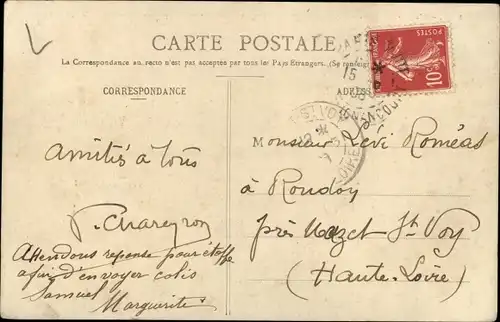 CARTE POSTALE
La Correspondance au recto n'est pas acceptée par tous les Pays Etrangers. (Se renseigner
CORRESPONDANCE
ADRESSE
POSTES
10c
Amitiés à tous
P. Chareyron
Attendons reponse pour étoffe
afin d'envoyer colis
Samuel
Marguerite
Monsieur Lévi Roméas
à Roudon
près Mazet St Voy
(Haute-Loire)